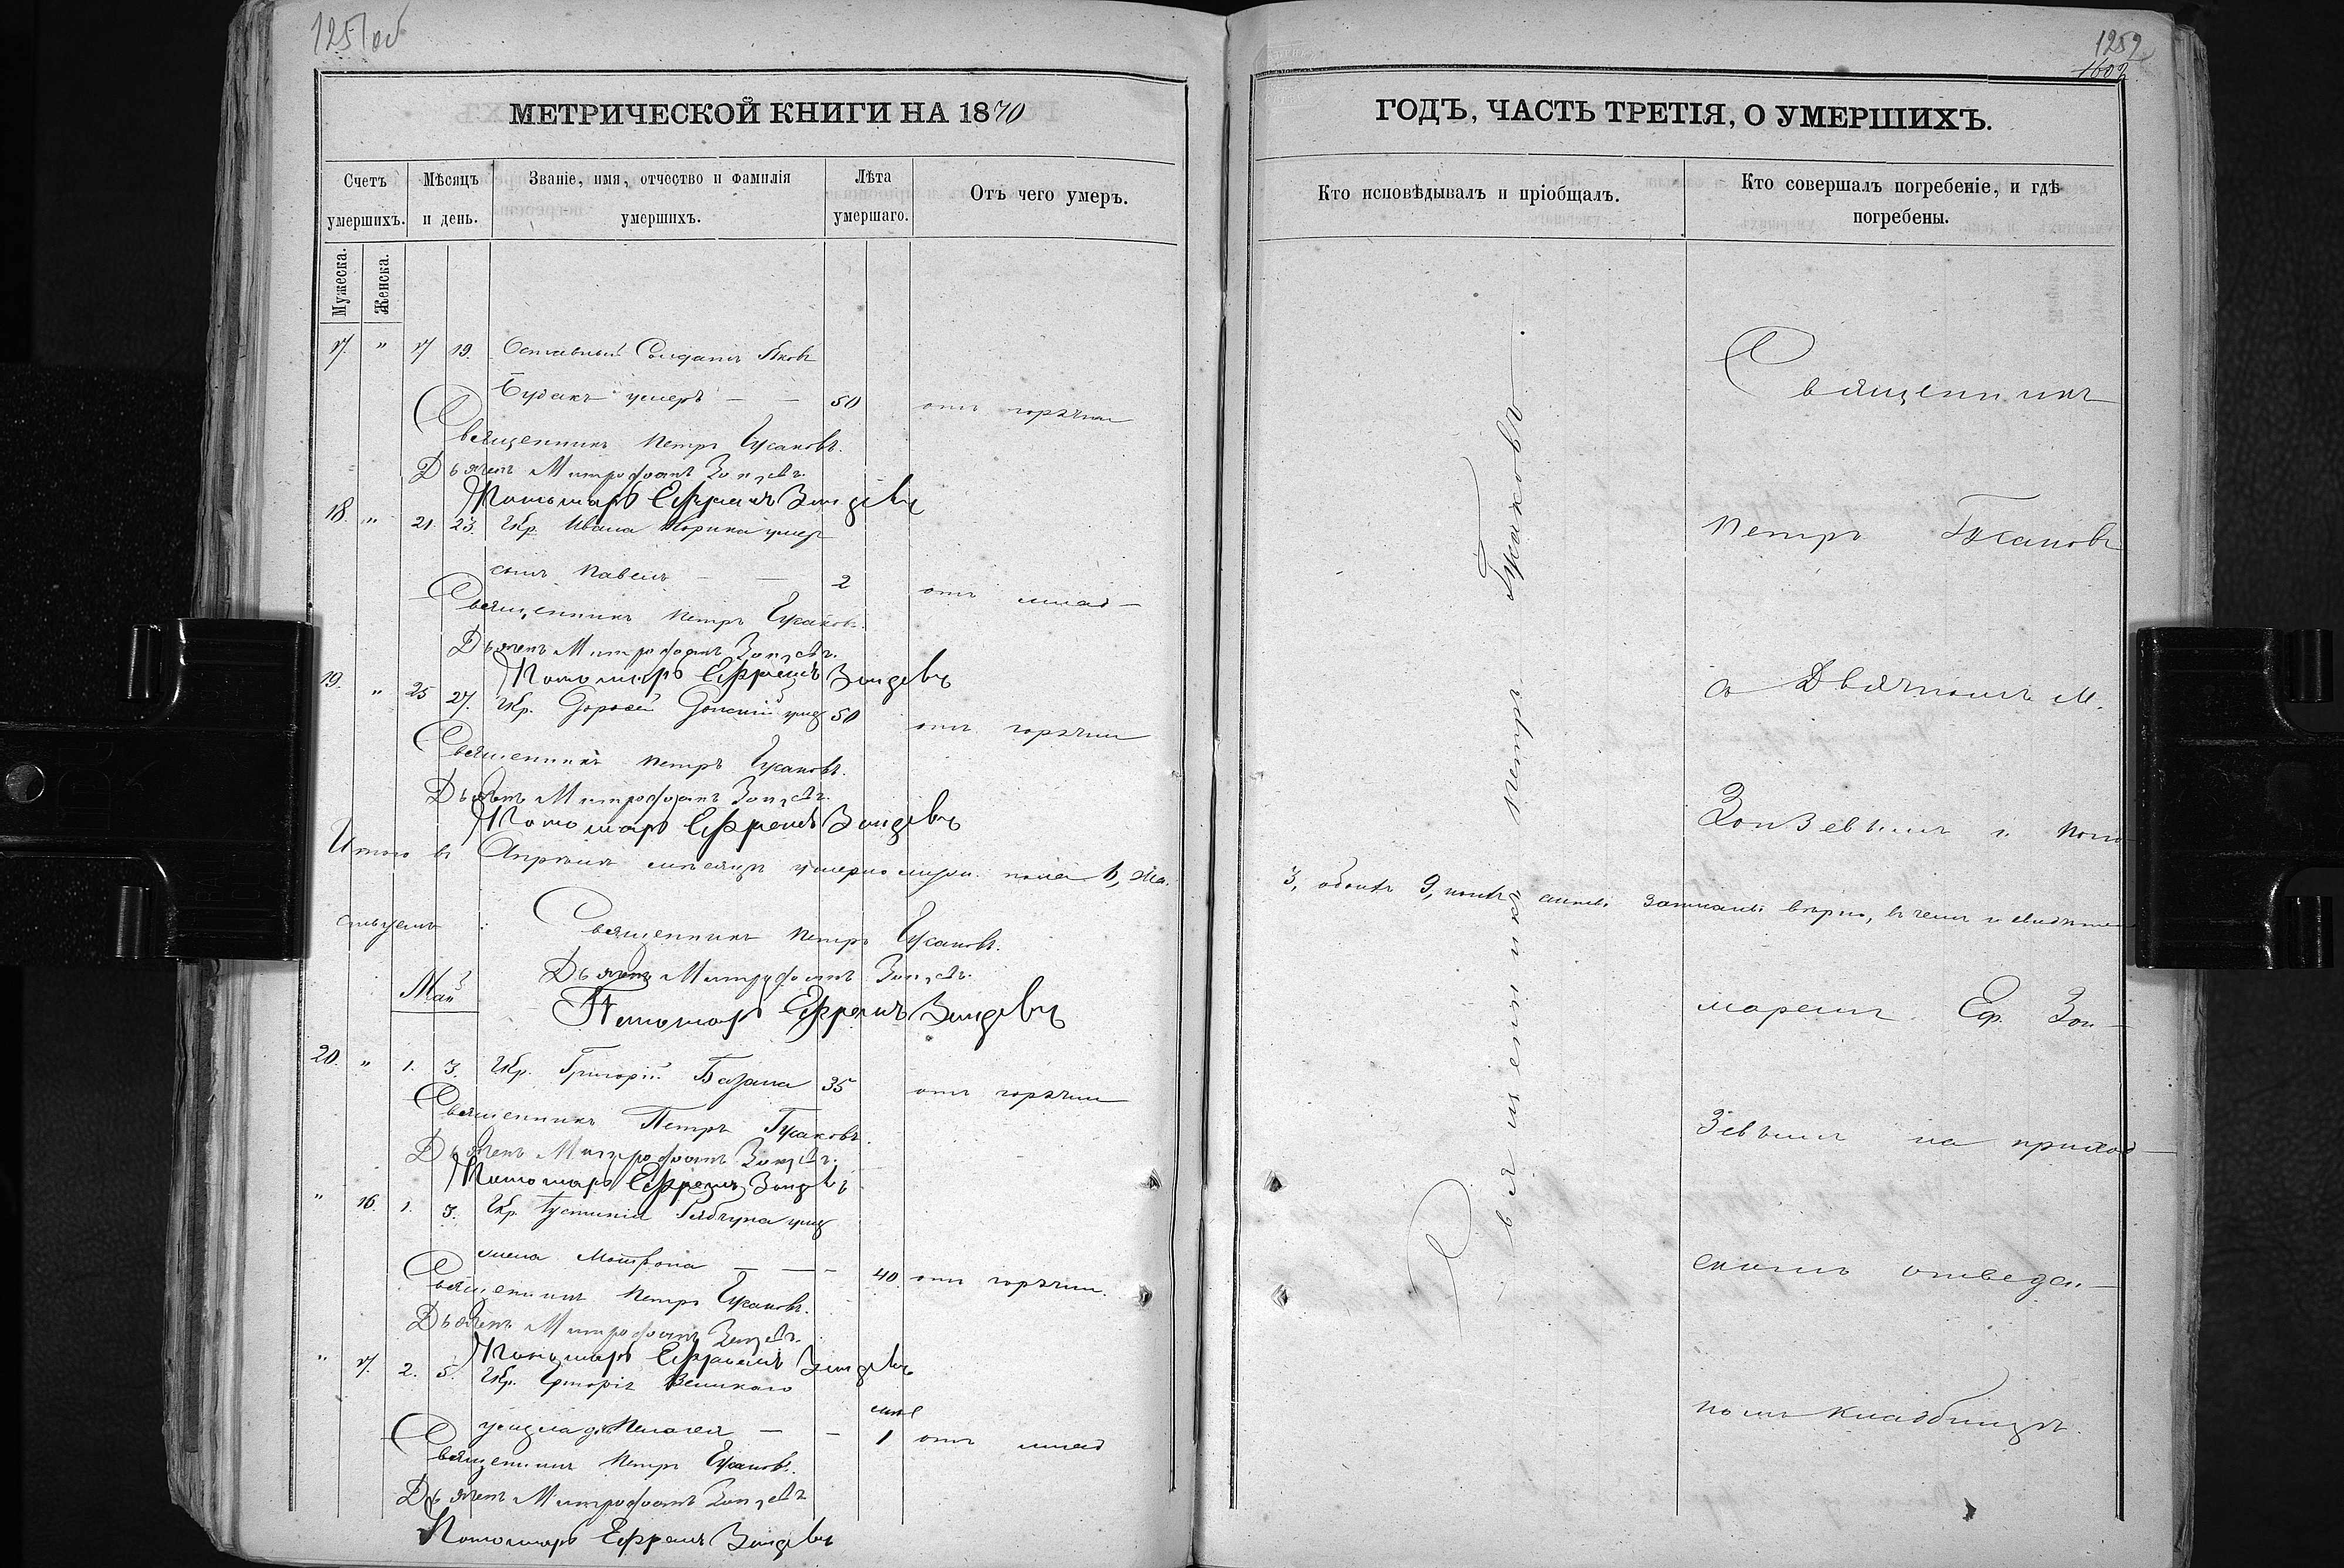 1251об
МЕТРИЧЕСКОЙ КНИГИ НА 1870
Счетъ умершихъ.
Мѣсяцъ и день.
Званіе, имя, отчество и фамилія умершихъ.
Лѣта умершаго.
Отъ чего умеръ.
Мужеска.
Женска.
17. " 17 19. Отставный Солдатъ Яковъ
Будакъ умеръ — — 50 отъ горячки
Священникъ Петръ Гусаковъ.
Дьячекъ Митрофанъ Зонзевъ.
Пономарь Ефремъ Зонзевъ
18. " 21. 23. Укр. Ивана Корика умер
сынъ Павелъ — — 2 отъ млад—
Священникъ Петръ Гусаковъ.
Дьячекъ Митрофанъ Зонзевъ.
Пономарь Ефремъ Зонзевъ
19. " 25 27. Укр. Дорофей Донский умер 50 отъ горячки
Священникъ Петръ Гусаковъ.
Дьячекъ Митрофанъ Зонзевъ.
Пономарь Ефремъ Зонзевъ
Итого въ Апрѣлѣ мѣсяцѣ умерло муж. пола 6, же.
ствуемъ :
Священникъ Петръ Гусаковъ.
Дьячекъ Митрофанъ Зонзевъ.
Май
Пономарь Ефремъ Зонзевъ
20. " 1. 3. Укр. Григорій Базана 35 отъ горячки
Священникъ Петръ Гусаковъ.
Дьячекъ Митрофанъ Зонзевъ.
Пономарь Ефремъ Зонзевъ
" 16. 1. 3. Укр. умер
жена Мотрона — — — 40. отъ горячки.
Священникъ Петръ Гусаковъ.
Дьячекъ Митрофанъ Зонзевъ.
Пономарь Ефремъ Зонзевъ
" 17. 2. 5. Укр. Григорія Великаго
умерла д. Пелагея — — 1 отъ млад
Священникъ Петръ Гусаковъ.
Дьячекъ Митрофанъ Зонзевъ
Пономарь Ефремъ Зонзевъ
1252
1602
ГОДЪ, ЧАСТЬ ТРЕТІЯ, О УМЕРШИХЪ.
Кто исповѣдывалъ и пріобщалъ.
Кто совершалъ погребеніе, и гдѣ погребены.
Священникъ Петръ Гусаковъ.
Священникъ
Петръ Гусаковъ
съ Дьячкомъ М.
Зонзевымъ и поно
3, обоихъ 9, записаны вѣрно, въ чемъ и свидѣтель
маремъ Еф. Зон—
зевымъ на приход—
скомъ отведен—
номъ кладбищѣ.